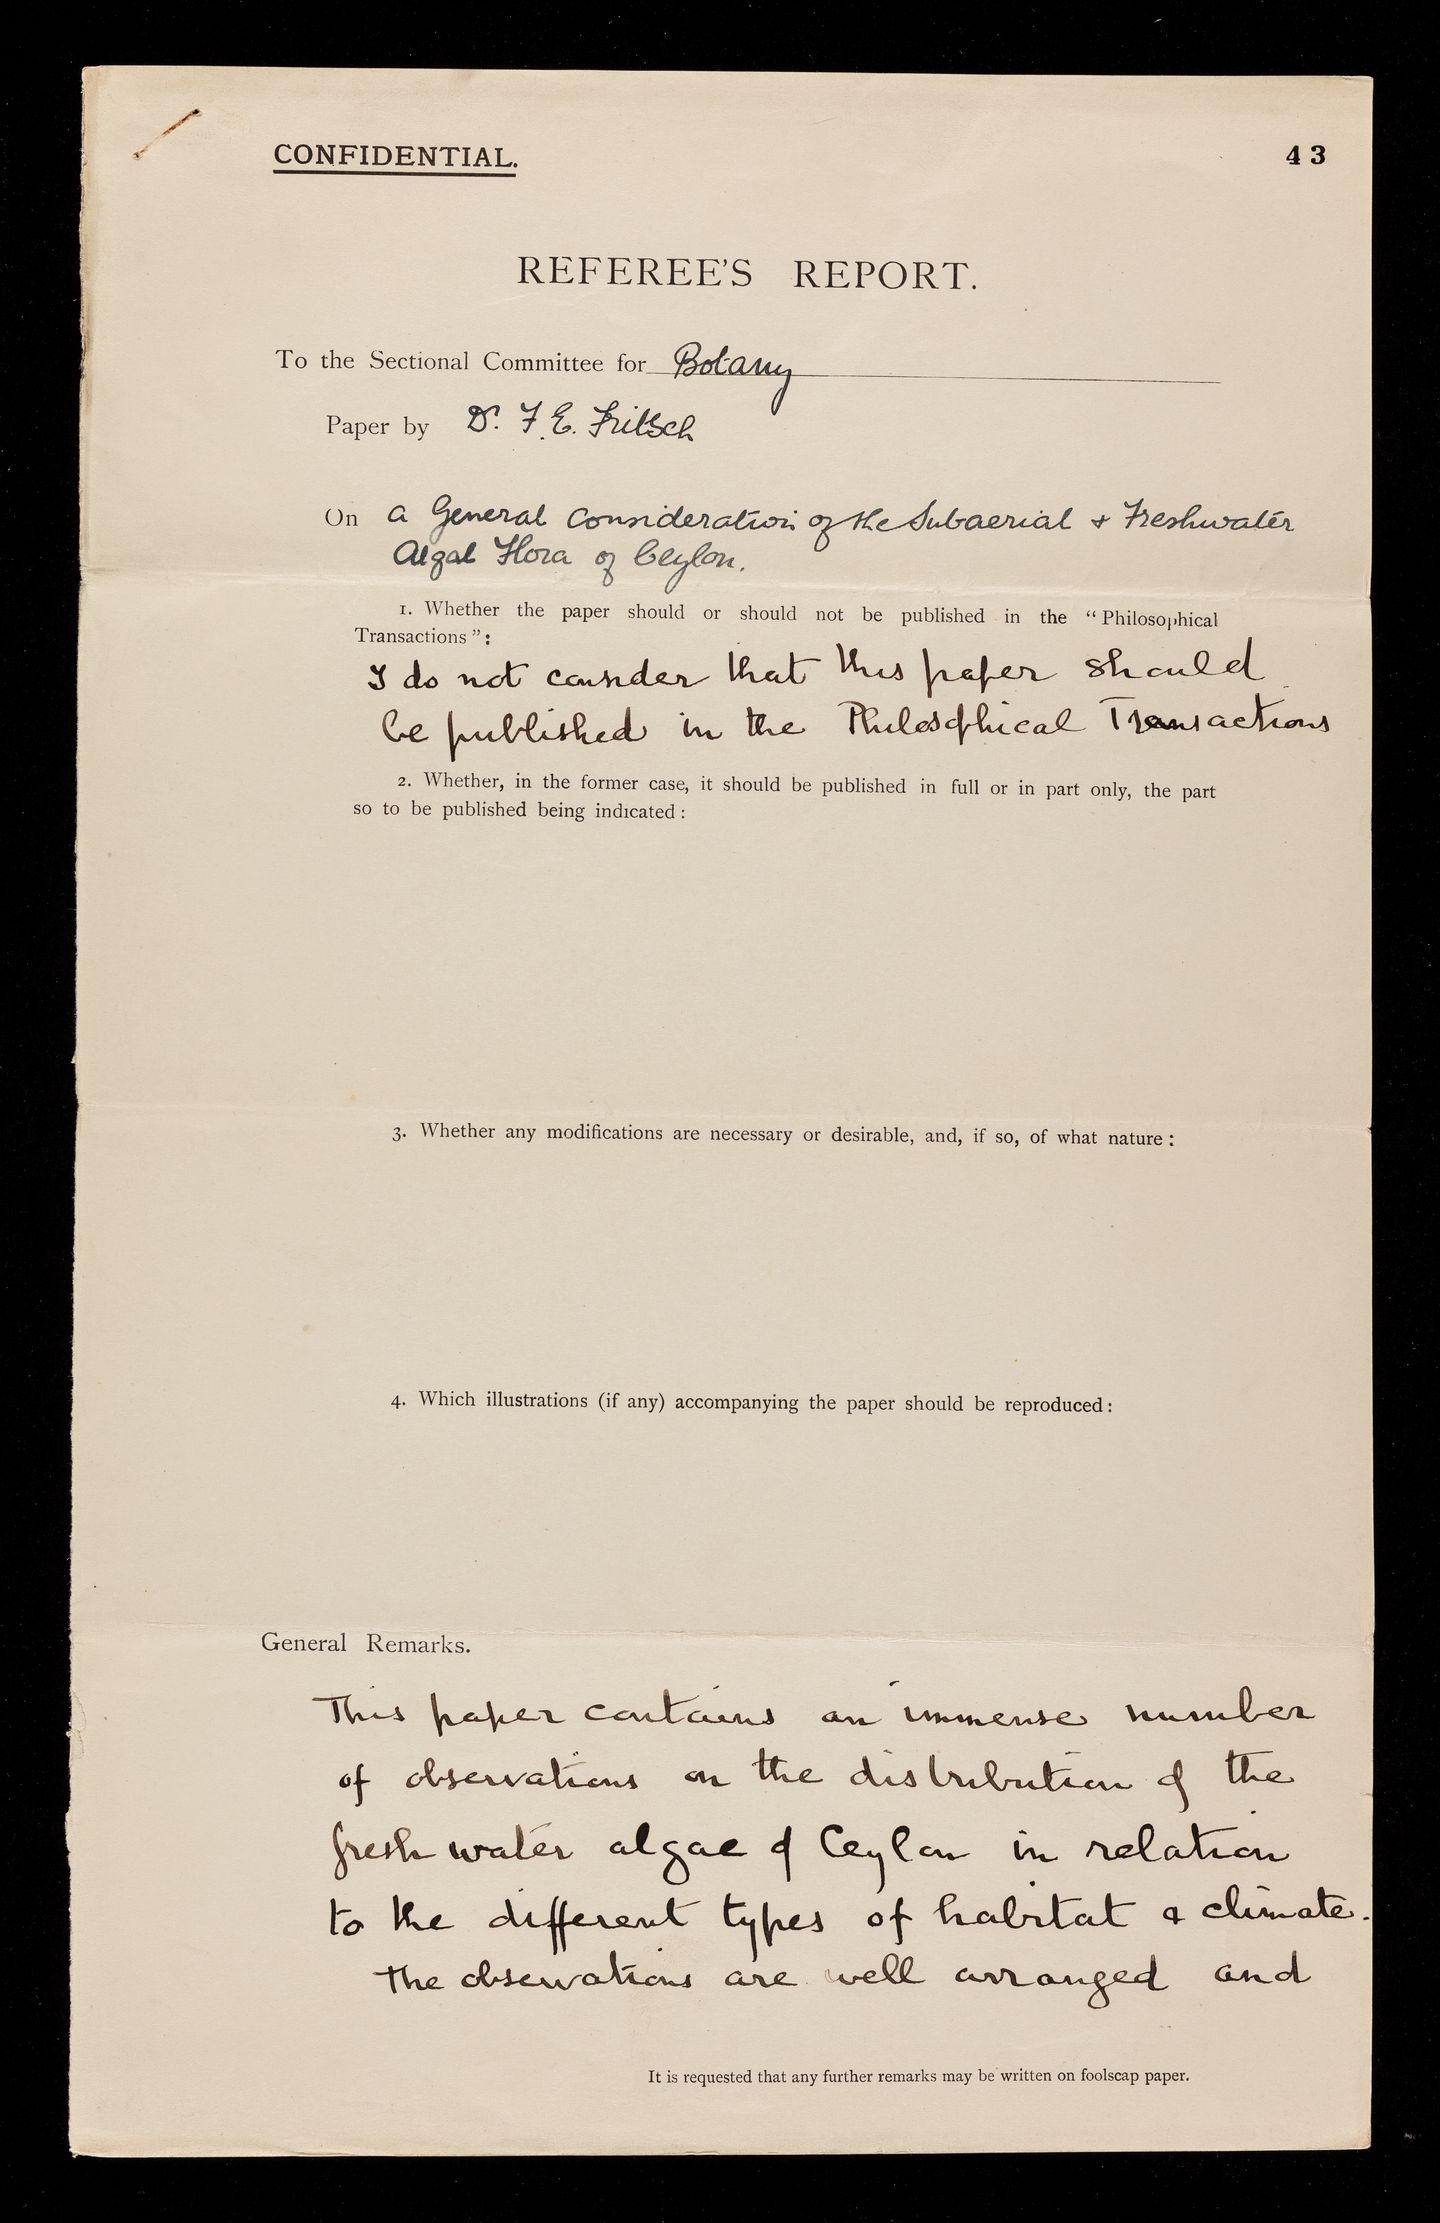 CONFIDENTIAL.
43
REFEREE'S REPORT.
To the Sectional Committee for Botany
Paper by Dr. F. E. Fritsch
On a General Consideration of the Subaerial & Freshwater
Algal Flora of Ceylon.
1. Whether the paper should or should not be published in the "Philosophical
Transactions":
I do not consider that this paper should
be published in the Philosophical Transactions
2. Whether, in the former case, it should be published in full or in part only, the part
so to be published being indicated:
3. Whether any modifications are necessary or desirable, and, if so, of what nature:
4. Which illustrations (if any) accompanying the paper should be reproduced:
General Remarks.
This paper contains an immense number
of observations on the distribution of the
fresh water algae of Ceylon in relation
to the different types of habitat & climate.
The observations are well arranged and
It is requested that any further remarks may be written on foolscap paper.